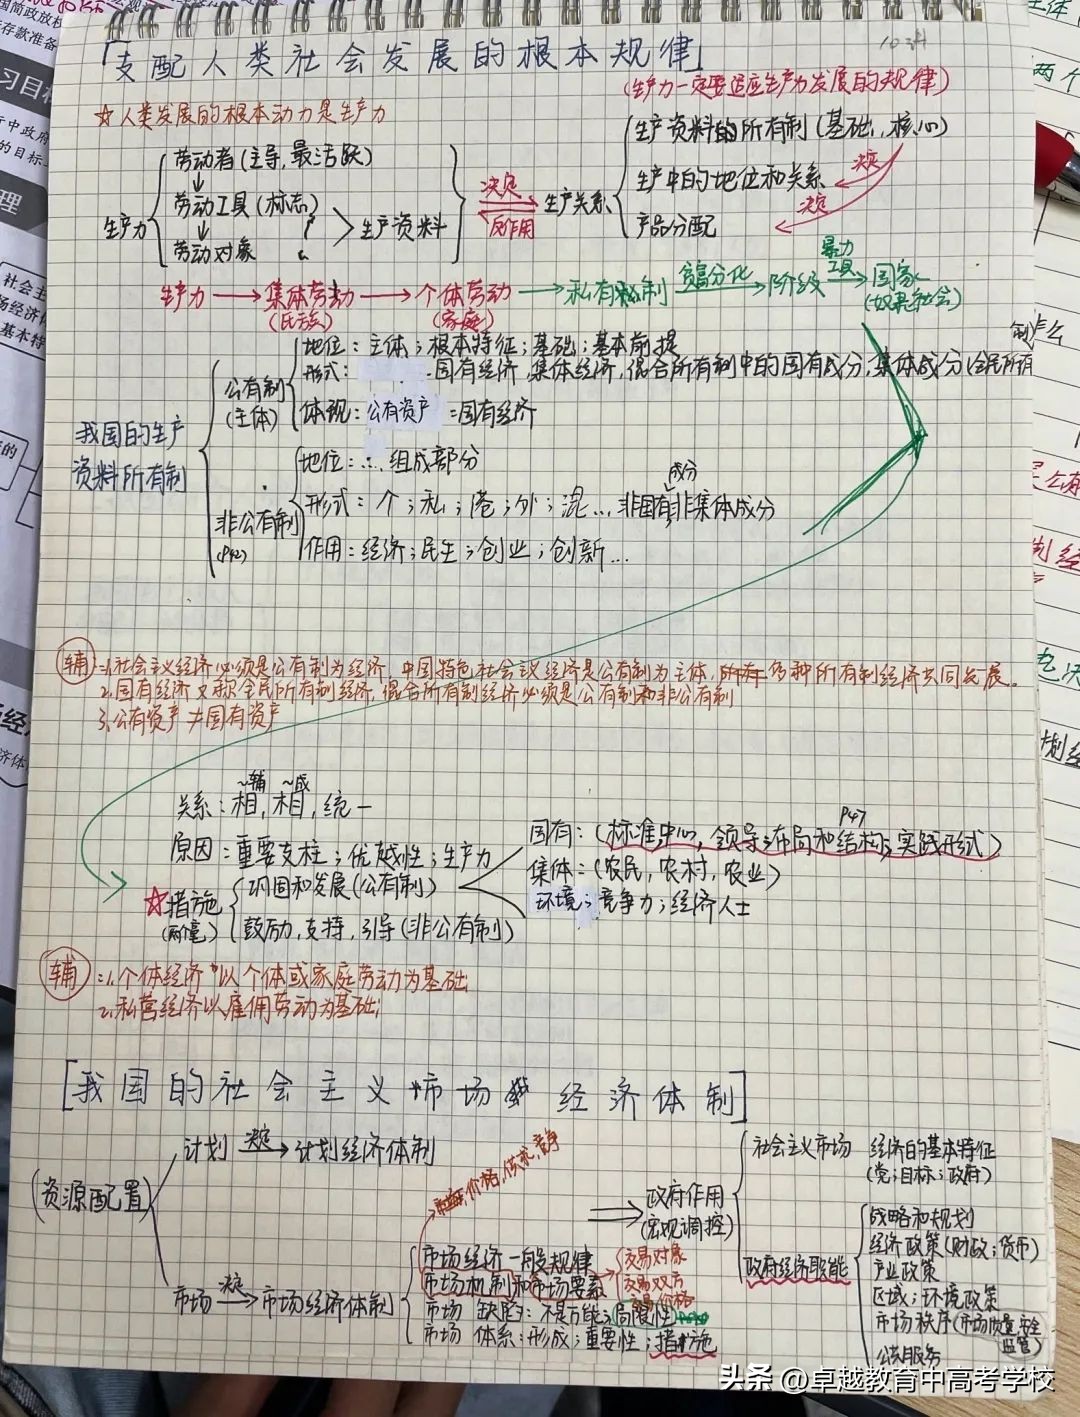 「支配人类社会发展的根本规律」
(生产力一定要适应生产力发展的规律)
☆人类发展的根本动力是生产力
生产力
劳动者(主导,最活跃)
劳动工具(标志)
劳动对象
生产资料
决定
反作用
生产关系
生产资料的所有制(基础,核心)
生产中的地位和关系
产品分配
决定
决定
生产力→集体劳动→个体劳动→私有制 贫富分化→阶级 暴力工具→国家
(氏族)
(家庭)
(奴隶社会)
我国的生产
资料所有制
公有制
(主体)
地位:主体;根本特征;基础;基本前提
形式: 国有经济,集体经济,混合所有制中的国有成分,集体成分(全民所有制
体现:公有资产=国有经济
非公有制
(P42)
地位:…组成部分
成分
形式:个;私;港;外;混…非国有非集体成分
作用:经济;民生;创业;创新…
辅:1.社会主义经济必须是公有制为经济,中国特色社会主义经济是公有制为主体,多种所有制经济共同发展。
2.国有经济又称全民所有制经济,混合所有制经济必须是公有制和非公有制
3.公有资产≠国有资产
关系:相~辅,相~成,统一
原因:重要支柱;优越性;生产力
☆措施
(两个毫)
巩固和发展(公有制)
鼓励,支持,引导(非公有制)
P47
国有:(标准中心,领导;布局和结构;实践形式)
集体:(农民,农村,农业)
环境;竞争力;经济人士
辅:1.个体经济"以个体或家庭劳动为基础;
2.私营经济以雇佣劳动为基础;
[我国的社会主义市场经济体制]
(资源配置)
计划 决定→计划经济体制
市场 决定→市场经济体制
价格,供求,竞争
市场经济一般规律
市场机制和市场要素
交易对象
交易双方
交易价格
市场 缺陷:不是万能;局限性
市场 体系:形成;重要性;措施
政府作用
(宏观调控)
社会主义市场 经济的基本特征
(党;目标;政府)
政府经济职能
战略和规划
经济政策(财政;货币)
产业政策
区域;环境政策
市场秩序(市场质量安全监管)
公共服务
头条 @卓越教育中高考学校